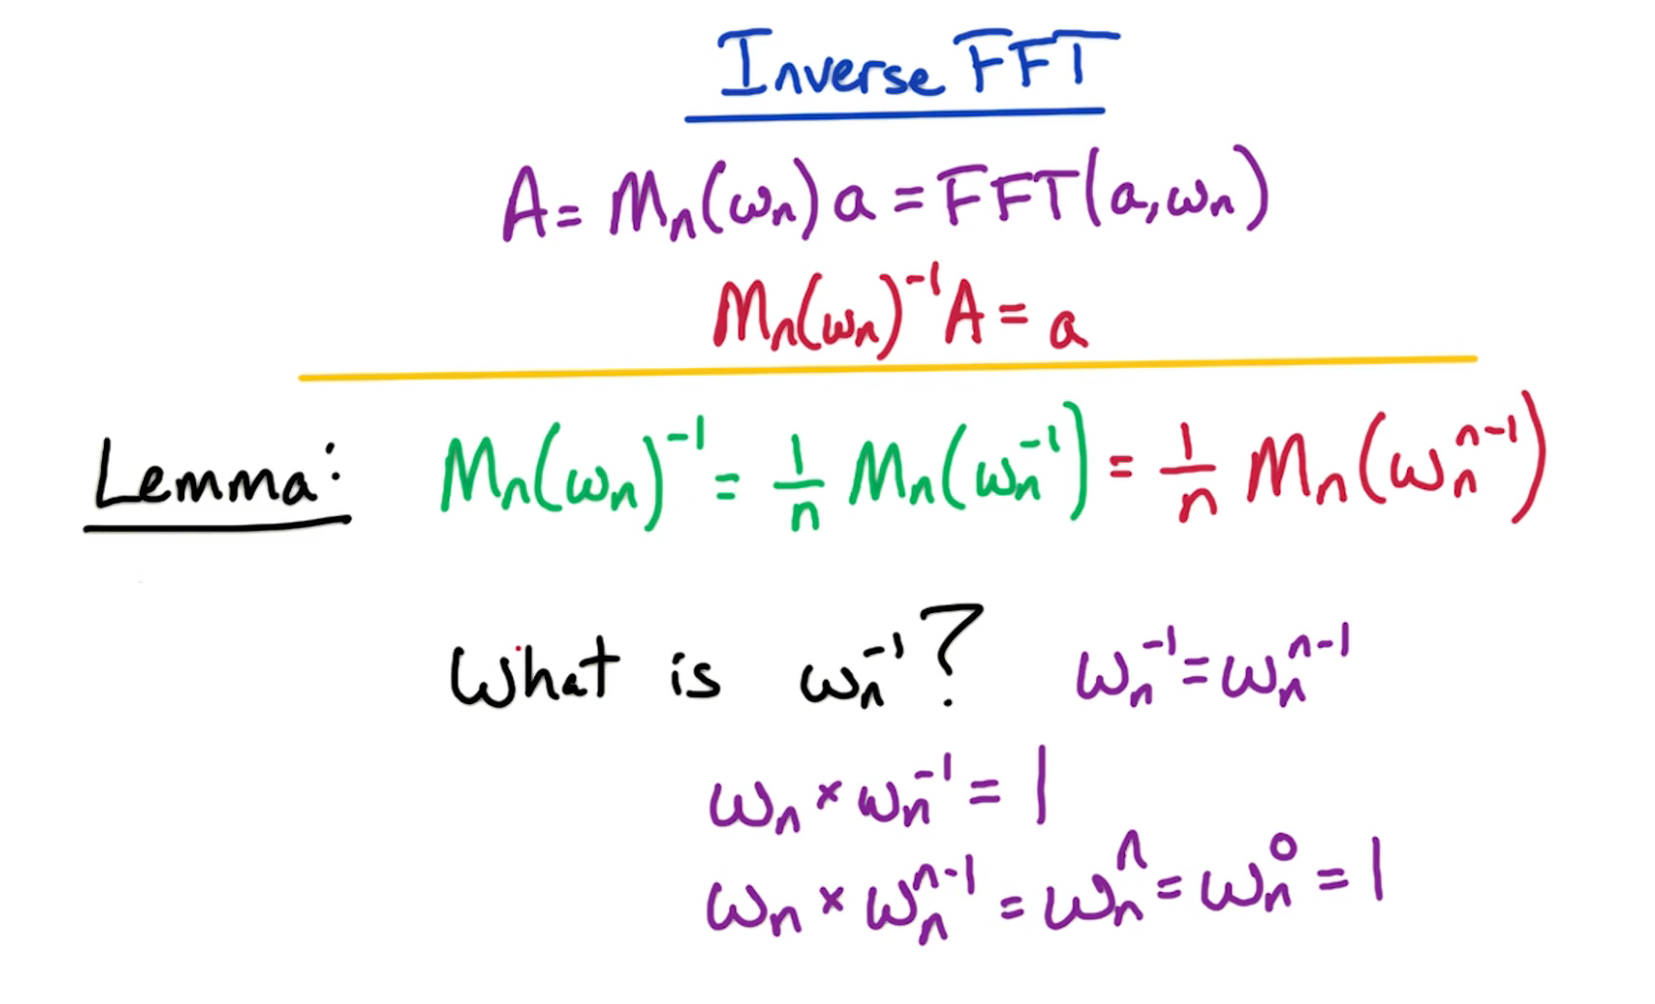 Inverse FFT
A = Mₙ(ωₙ) a = FFT(a, ωₙ)
Mₙ(ωₙ)⁻¹ A = a
Lemma: Mₙ(ωₙ)⁻¹ = 1/n Mₙ(ωₙ⁻¹) = 1/n Mₙ(ωₙⁿ⁻¹)
What is ωₙ⁻¹? ωₙ⁻¹ = ωₙⁿ⁻¹
ωₙ × ωₙ⁻¹ = 1
ωₙ × ωₙⁿ⁻¹ = ωₙⁿ = ωₙ⁰ = 1